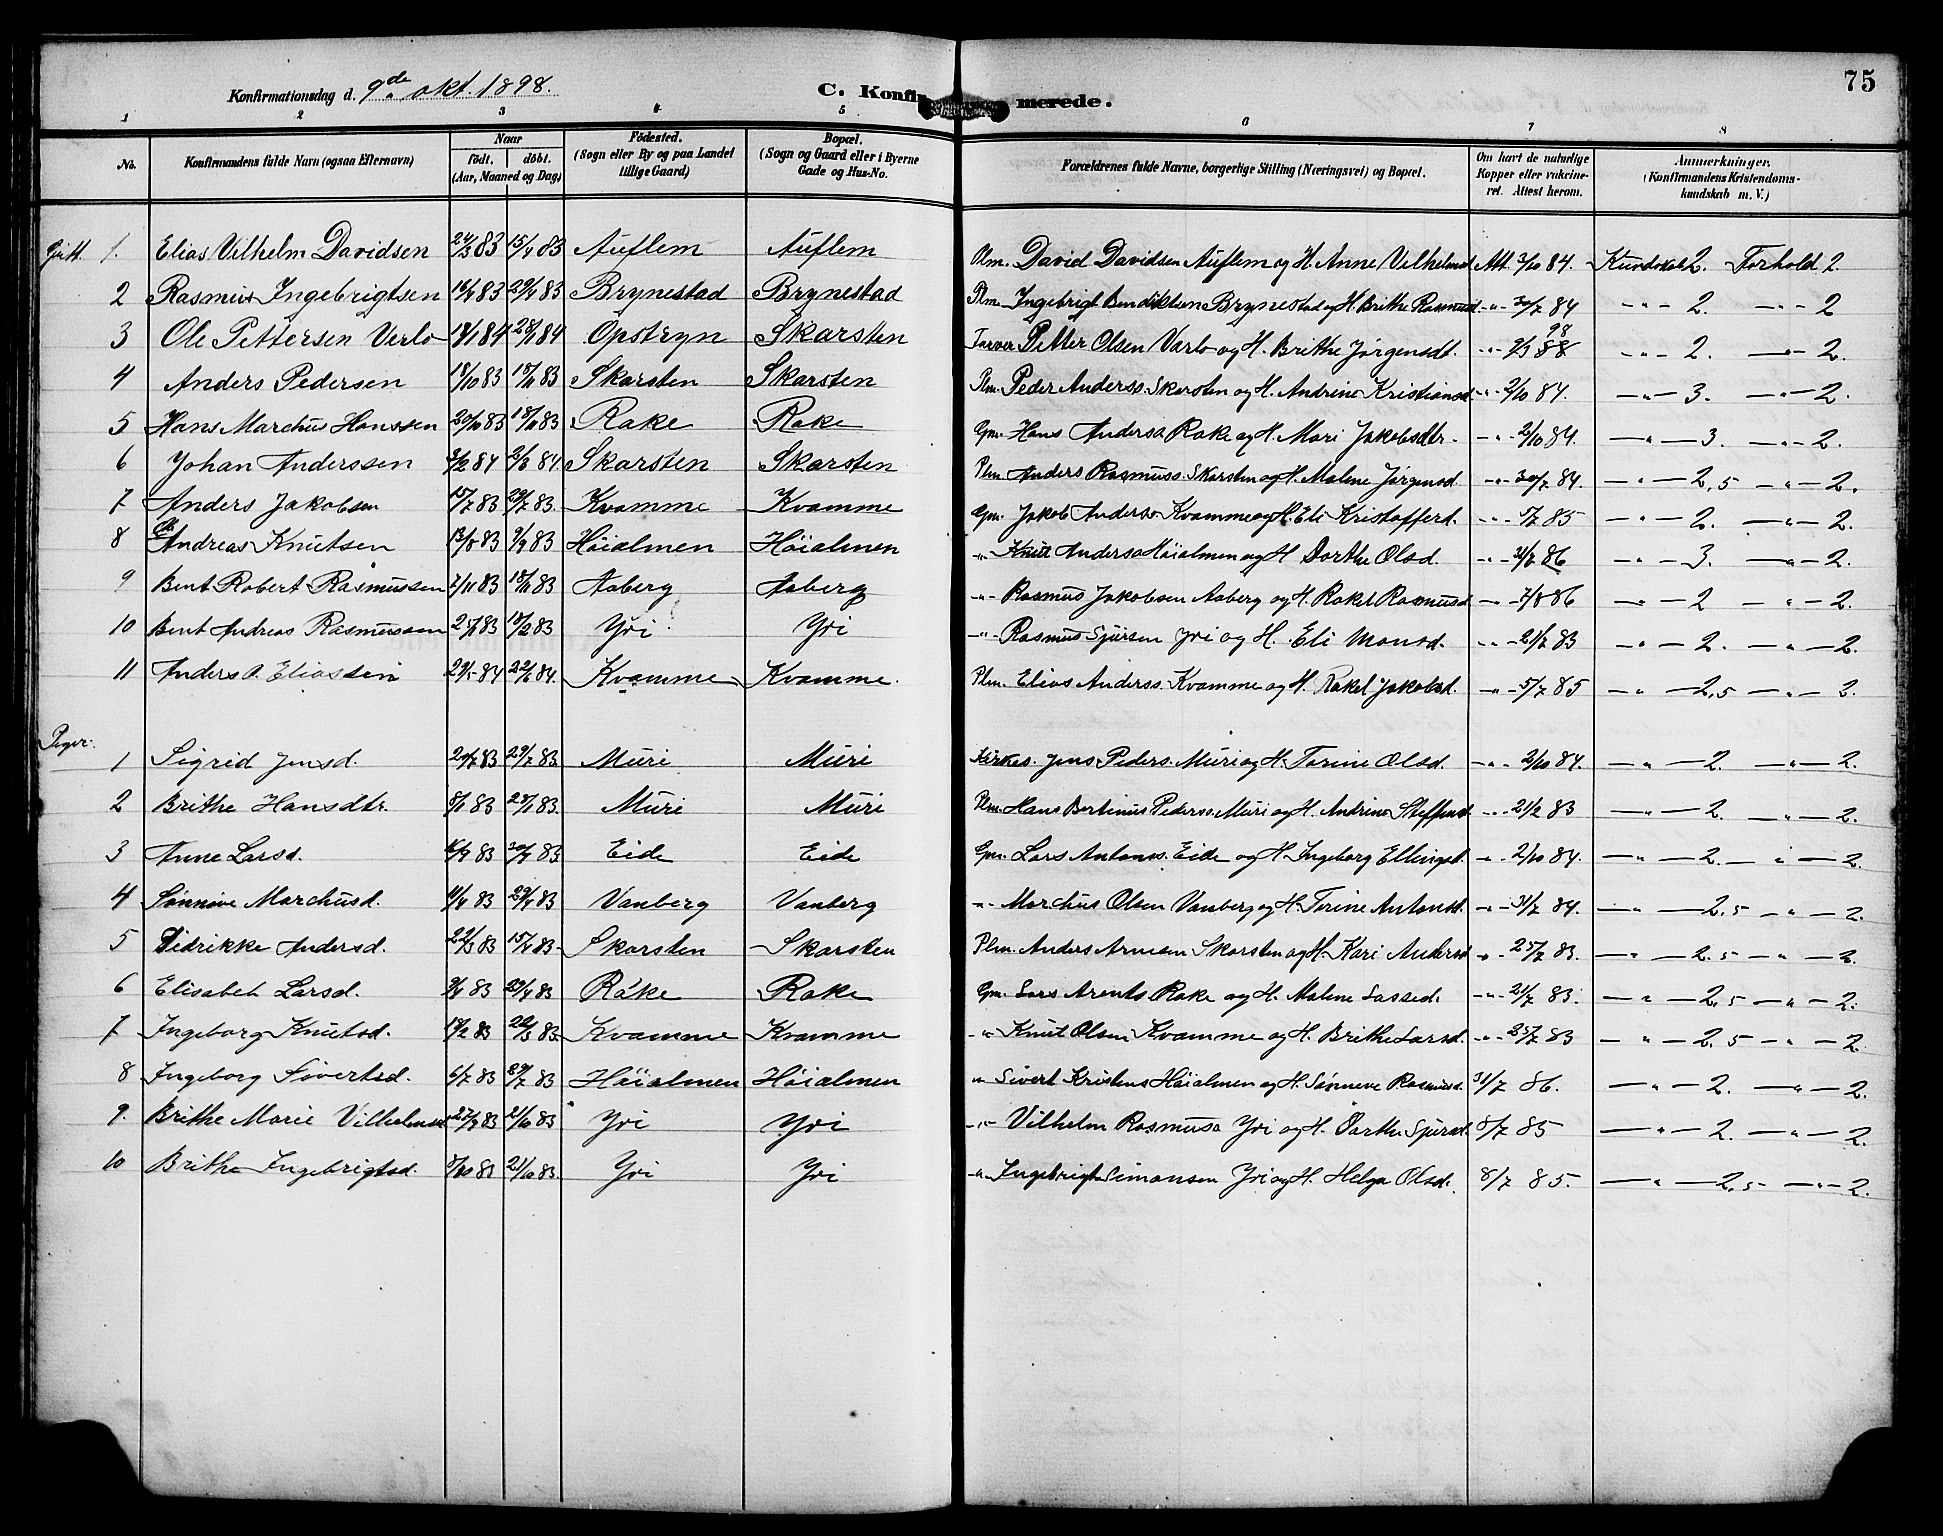 75
Konfirmationsdag d. 9de okt. 1898.
C. Konfirmerede.
1 2 3 4 5 6 7 8
No. Konfirmandens fulde Navn (ogsaa Efternavn) Naar født. døbt. (Aar, Maaned og Dag) Fødested. (Sogn eller By og paa Landet tillige Gaard) Bopæl. (Sogn og Gaard eller i Byerne Gade og Hus-No. Forældrenes fulde Navne, borgerlige Stilling (Næringsvei) og Bopæl. Om havt de naturlige Kopper eller vakcineret. Attest herom. Anmærkninger. (Konfirmandens Kristendomskundskab m. V.)
Gutt. 1. Elias Vilhelm Davidsen 24/3 83 15/4 83 Auflem Auflem David Davidsen Auflem og H. Anne Vilhelmsd Att. 3/10 84. Kundskab 2. Forhold 2.
2 Rasmus Ingebrigtsen 83 29/4 83 Brynestad Brynestad Plm. Ingebrigt Bendiktsen Brynestad og H. Brithe Rasmusd. -"- 30/7 84 -"- 2. -"- 2
3 Ole Pettersen Verlo 18/1 84 28/1 84 Opstryn Skarsten Farver Petter Olsen Varlo og H. Brithe Jørgensdt. -"- 98 -"- 2. -"- 2.
4 Anders Pedersen 18/10 83 18/11 83 Skarsten Skarsten Plm. Peder Anderss. Skarsten og H. Andrine Kristiansd. -"- 2/10 84. -"- 3. -"- 2.
5 Hans Marchus Hanssen 20/10 83 18/11 83 Rake Rake Gm. Hans Anderss Rake og H. Mari Jakobsdtr. -"- 2/10 84. -"- 3. -"- 2.
6 Johan Anderssen 84 84 Skarsten Skarsten Plm. Anders Rasmuss. Skarsten og H. Malene Jørgensd. -"- 30/7 84. -"- 2,5 -"- 2.
7 Anders Jakobsen 15/7 83 29/7 83. Kvamme Kvamme Gm. Jakob Anderss Kvamme og H. Eli Kristoffersd. -"- 85 -"- 2. -"- 2.
8 Andreas Knutsen 83 9/9 83 Høialmen Høialmen -"- Knut Anderss Høialmen og H Dorthe Olsd. -"- 86 -"- 3. -"- 2.
9 Bent Robert Rasmussen 7/11 83 18/11 83 Aaberg Aaberg -"- Rasmus Jakobsen Aaberg og H. Rakel Rasmusd -"- 7/8 86 -"- 2 -"- 2.
10 Bent Andreas Rasmussen 25/1 83 18/2 83 Yri Yri -"- Rasmus Sjursen Yri og H. Eli Monsd. -"- 21/7 83 -"- 2. -"- 2.
11 Anders A. Eliassen 84 84. Kvamme Kvamme. Plm. Elias Anderss. Kvamme og H. Rakel Jakobsd. -"- 5/7 85 -"- 2,5 -"- 2.
Piger.
1 Sigrid Jensd. 83 29/7 83 Muri Muri Kirkes. Jens Peders. Muri og H. Torine Olsd. -"- 2/10 84. -"- 2. -"- 2.
2 Brithe Hansdtr. 83 28/1 83. Muri Muri Plm. Hans Bertinus Peders. Muri og H. Andrine Steffensd. -"- 83 -"- 2. -"- 2.
3 Anne Larsd. 83 83 Eide Eide Gm. Lars Antons. Eide og H. Ingeborg Ellingsd. -"- 2/10 84. -"- 2. -"- 2.
4 Sønnøve Marchusd. 83 29/4 83 Vanberg Vanberg -"- Marchus Olsen Vanberg og H. Torine Antonsd. -"- 31/7 84. -"- 2,5 -"- 2.
5 Didrikke Andersd. 22/3 83 15/4 83. Skarsten Skarsten Plm. Anders Arnesen Skarsten og H. Kari Andersd -"- 25/7 83. -"- 2.5 -"- 2.
6 Elisabet Larsd. 83 29/4 83 Rake Rake Gm. Lars Arents Rake og H. Malene Lassed. -"- 21/7 83. -"- 2.5 -"- 2.
7 Ingeborg Knutsd. 18/2 83 83. Kvamme Kvamme -"- Knut Olsen Kvamme og H. Brithe Larsd. -"- 25/7 83 -"- 2. 5 -"- 2.
8 Ingeborg Sivertsd. 6/7 83 29/7 83 Høialmen Høialmen -"- Sivert Kristens Høialmen og H. Sønneve Rasmusd. 31/7 86. -"- 2. -"- 2.
9. Brithe Marie Vilhelmsd 27/9 83 21/10 83 Yri Yri -"- Vilhelm Rasmuss Yri og H. Dorthe Sjursd. 8/7 85 -"- 2. -"- 2.
10 Brithe Ingebrigtsd. 83 21/10 83 Yri Yri -"- Ingebrigt Simonsen Yri og H. Helga Olsd. 8/7 85. -"- 2,5 -"- 2.